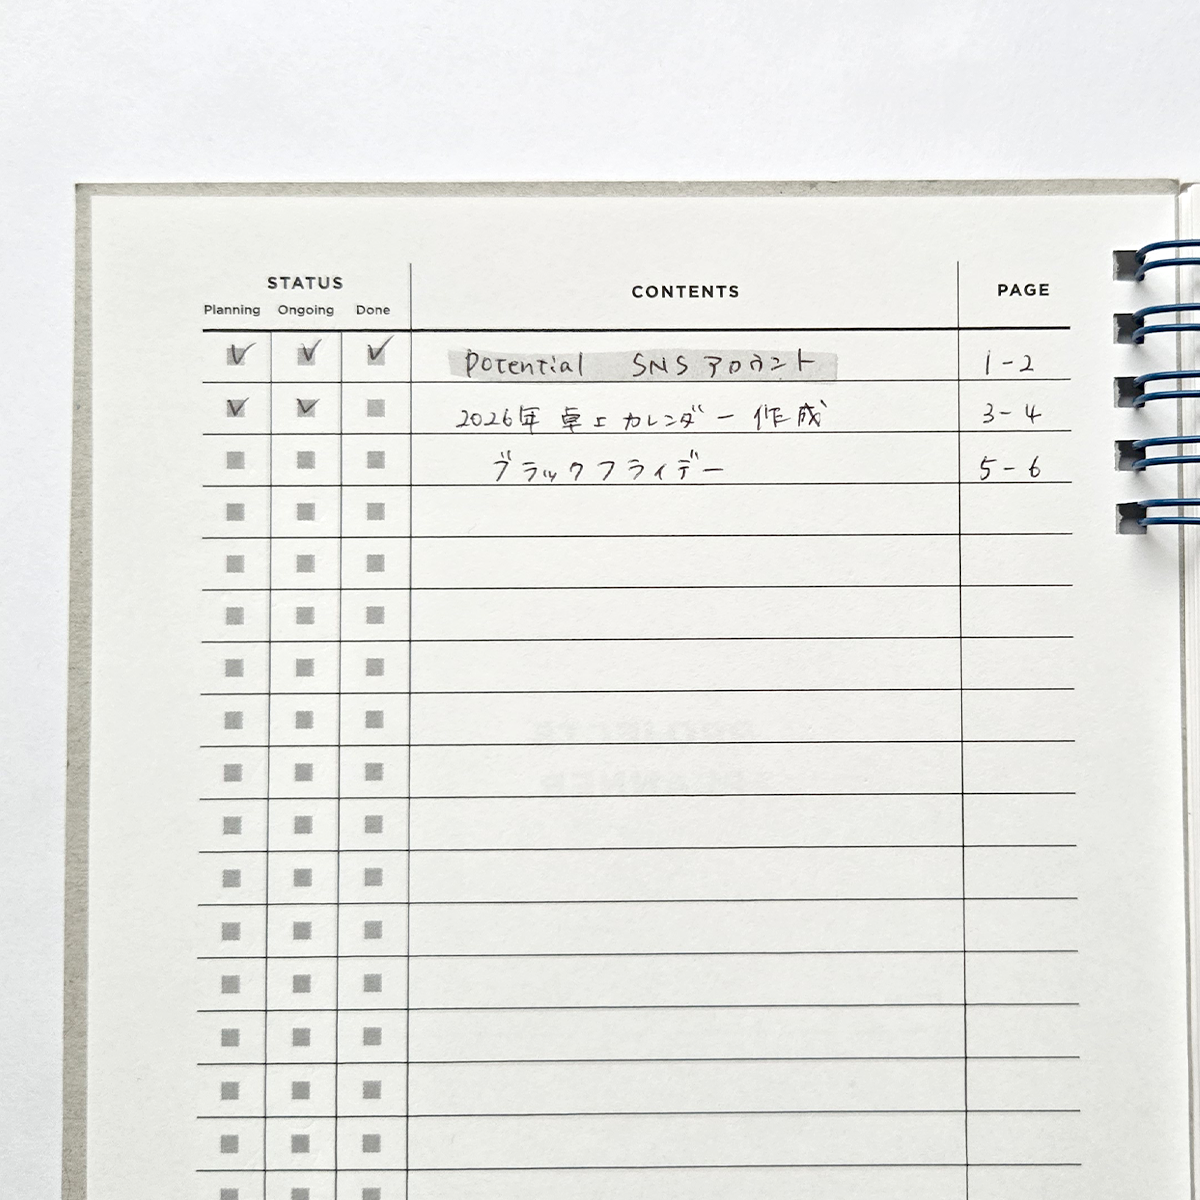 STATUS CONTENTS PAGE
Planning Ongoing Done
Potential SNSアカウント 1-2
2026年 卓上カレンダー作成 3-4
ブラックフライデー 5-6